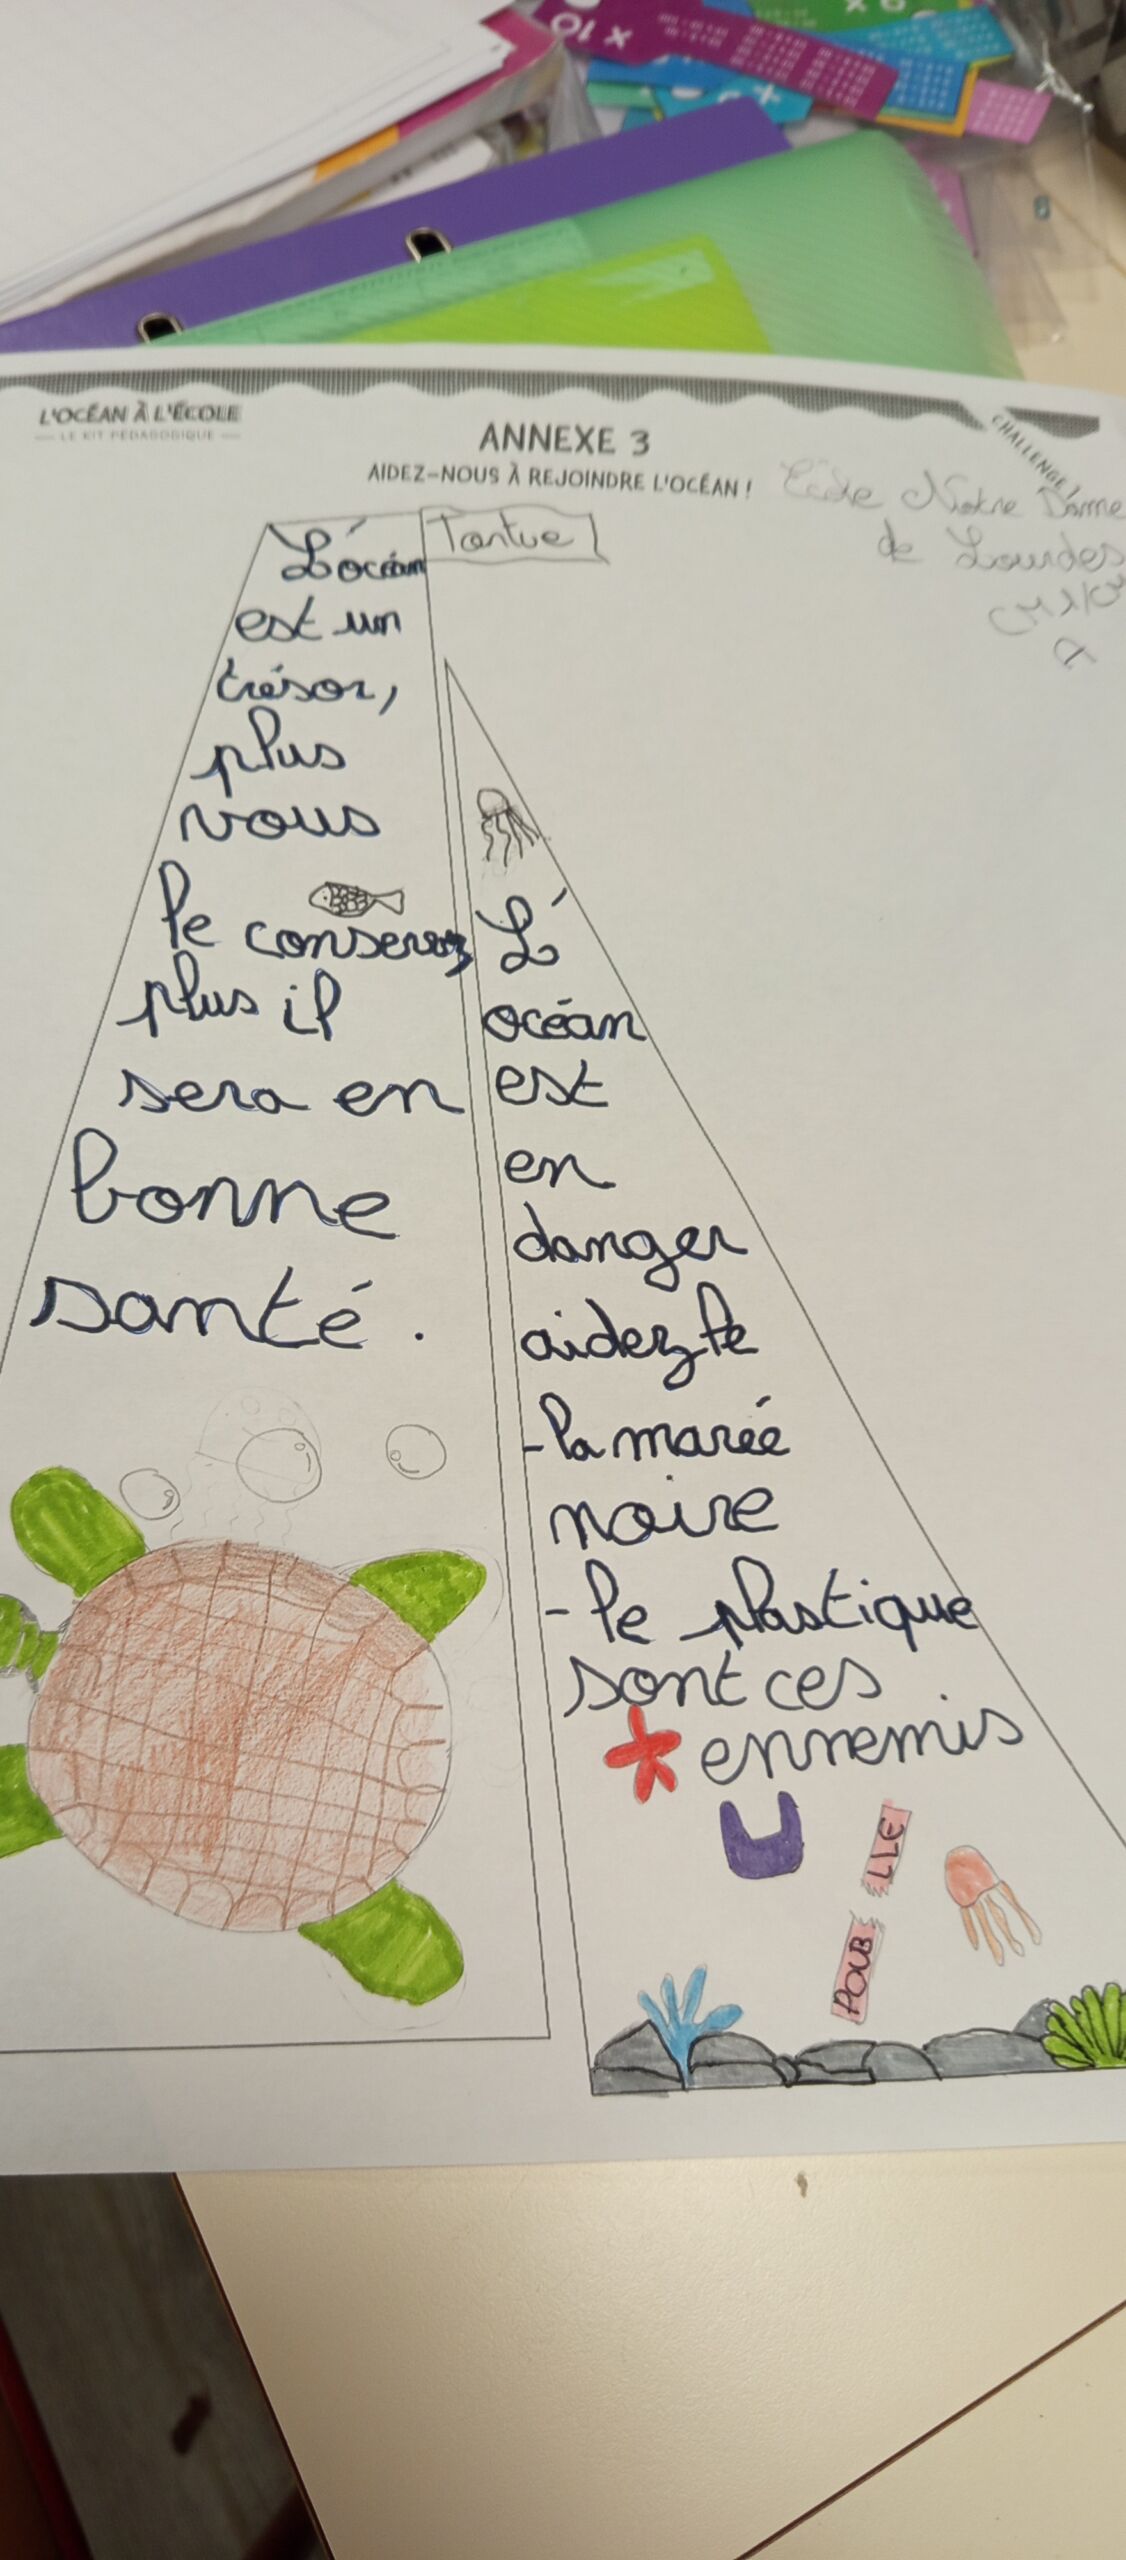 L'OCÉAN À L'ÉCOLE
LE KIT PÉDAGOGIQUE
ANNEXE 3
AIDEZ-NOUS À REJOINDRE L'OCÉAN !
CHALLENGE
École Notre Dame
de Lourdes
Tortue
L'océan
est un
trésor,
plus
vous
le conservez
plus il
sera en
bonne
santé.
L'
océan
est
en
danger
aidez le
- la marée
noire
- le plastique
sont ces
ennemis
POUB LLE